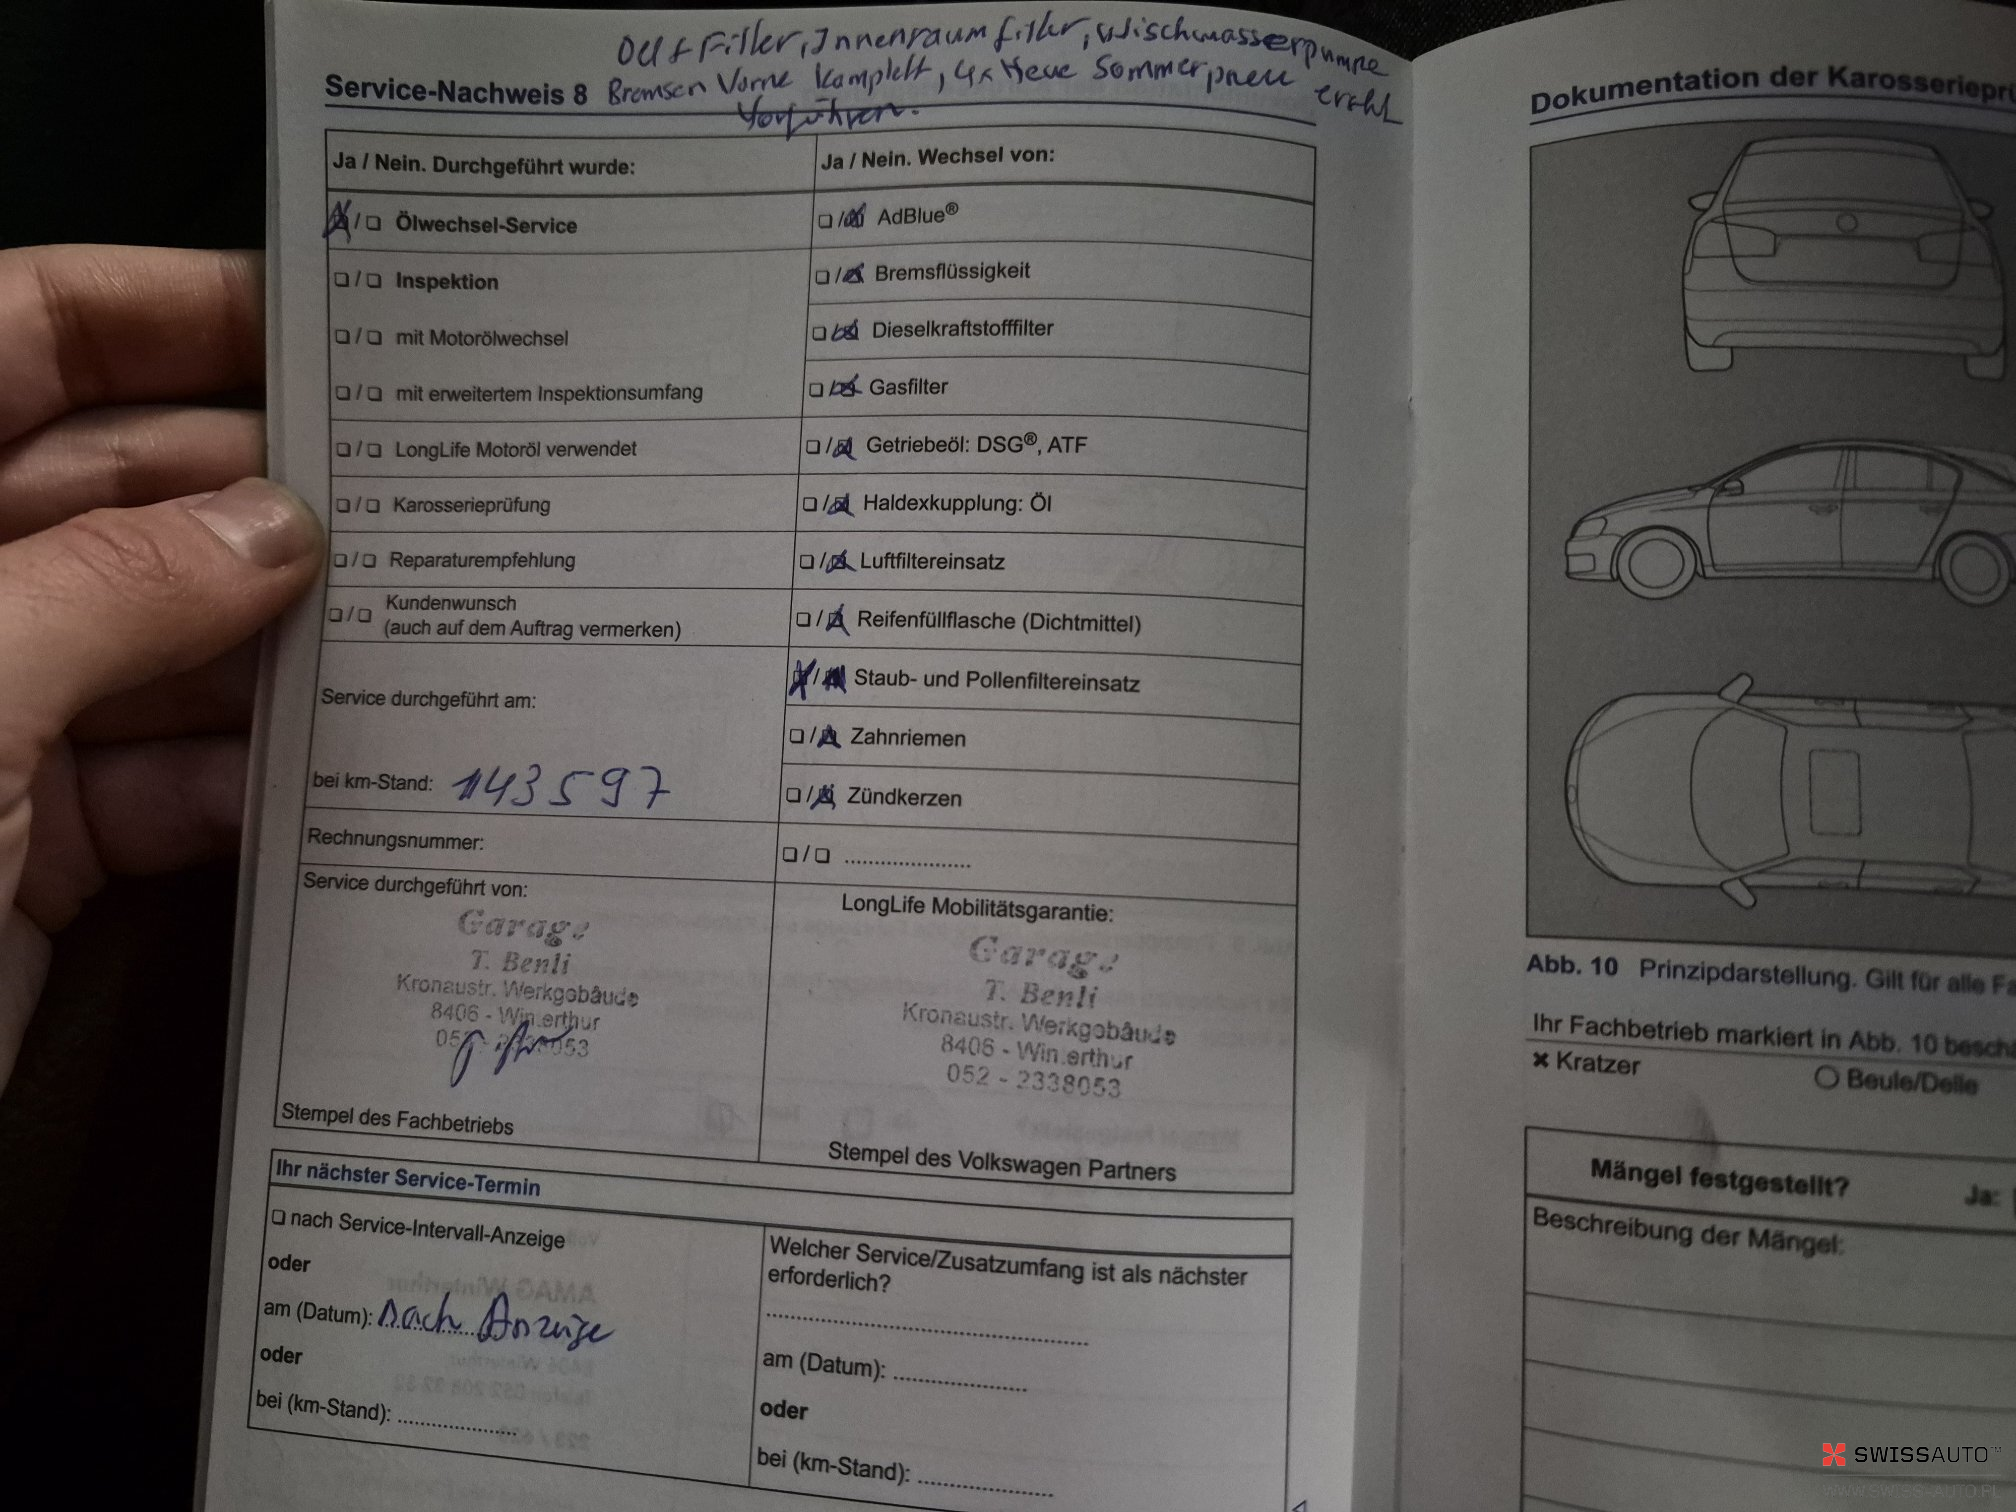 Oel + Filter, Innenraumfilter, Wischwasserpumpe
Service-Nachweis 8 Bremsen Vorne Komplett, 4x Neue Sommerpneu
Vorführen.
Ja / Nein. Durchgeführt wurde:
Ja / Nein. Wechsel von:
Ölwechsel-Service
AdBlue®
Inspektion
Bremsflüssigkeit
mit Motorölwechsel
Dieselkraftstofffilter
mit erweitertem Inspektionsumfang
Gasfilter
LongLife Motoröl verwendet
Getriebeöl: DSG®, ATF
Karosserieprüfung
Haldexkupplung: Öl
Reparaturempfehlung
Luftfiltereinsatz
Kundenwunsch
(auch auf dem Auftrag vermerken)
Reifenfüllflasche (Dichtmittel)
Staub- und Pollenfiltereinsatz
Service durchgeführt am:
Zahnriemen
bei km-Stand: 143597
Zündkerzen
Rechnungsnummer:
Service durchgeführt von:
Garage
T. Benli
Kronaustr. Werkgobäude
8406 - Winterthur
Stempel des Fachbetriebs
LongLife Mobilitätsgarantie:
Garage
T. Benli
Kronaustr. Werkgobäude
8406 - Winterthur
052 - 2338053
Stempel des Volkswagen Partners
Ihr nächster Service-Termin
nach Service-Intervall-Anzeige
oder
am (Datum): nach Anzeige
oder
bei (km-Stand): ....................
Welcher Service/Zusatzumfang ist als nächster
erforderlich?
am (Datum): ......................
oder
bei (km-Stand): ......................
Dokumentation der Karosserieprü
Abb. 10 Prinzipdarstellung. Gilt für alle Fa
Ihr Fachbetrieb markiert in Abb. 10 beschä
× Kratzer
Beule/Delle
Mängel festgestellt?
Ja:
Beschreibung der Mängel:
SWISSAUTO™
WWW.SWISSAUTO.PL